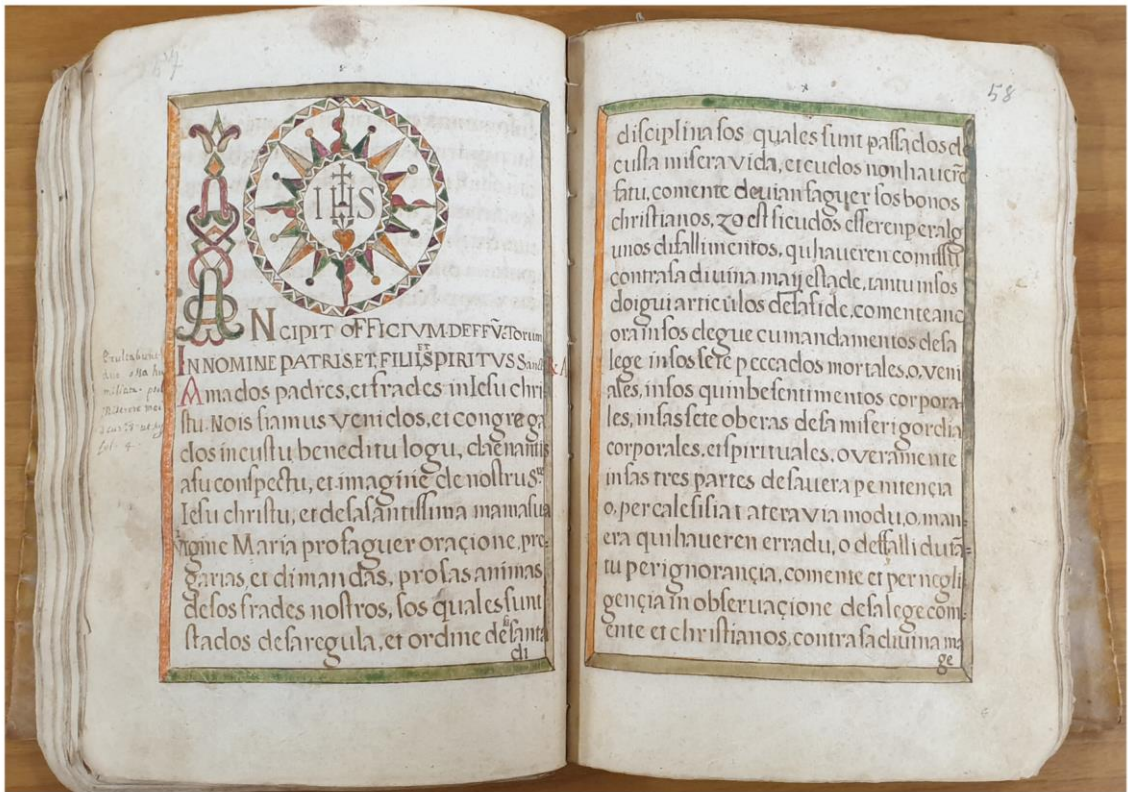 IHS
INCIPIT OFFICIVM.DEFFVCTorum
IN NOMINE PATRIS.ET.FILII.ET SPIRITVS Sancti. A
Amados padres, et frades in Iesu chri
stu. Nois siamus venidos, et congrega
dos in custu beneditu logu, daenantis
a su conspectu, et imagine de nostru S.re
Iesu christu, et de sa santissima mama sua
Virgine Maria pro faguer oraçione, pre=
garias, et dimandas, pro sas animas
de sos frades nostros, sos quales sunt
stados de sa regula, et ordine de sa santa
di
58
disciplina sos quales sunt passados de
custa misera vida, et cudos non haueren
fatu, comente deuian faguer sos bonos
christianos, zo est si cudos esseren per alg
unos difallimentos, qui haueren comissu
contra sa diuina maijestade, tantu in sos
doigui articulos de sa fide, comente anc
ora in sos degue cumandamentos de sa
lege in sos sete peccados mortales, o, veni
ales, in sos quinbe sentimentos corpora=
les, in sas sete oberas de sa miserigordia
corporales, et spirituales, o veramente
in sas tres partes de sa vera penitençia
o, per calesisiat atera via modu, o, man=
era qui haueren erradu, o deffallidu tā=
tu per ignorançia, comente et per negli
gençia in obseruaçione de sa lege com=
ente et christianos, contra sa diuina ma
ge